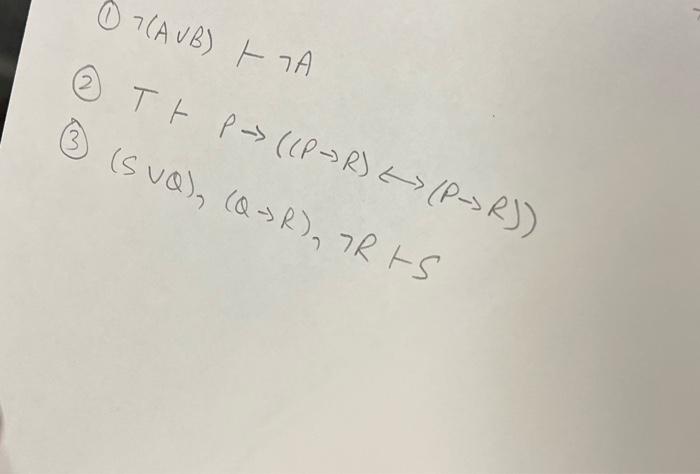 ① ¬(A∨B) ⊢ ¬A
② T ⊢ P→((P→R)↔(P→R))
③ (S∨Q), (Q→R), ¬R ⊢ S